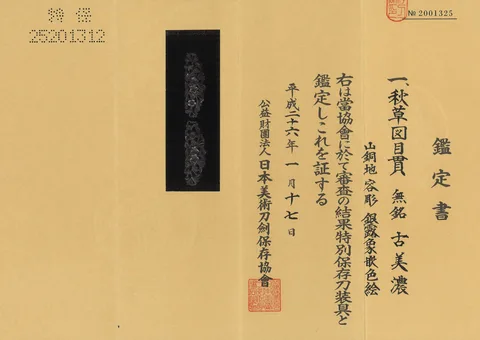 特保
25201312
№ 2001325
鑑定書
一、秋草図目貫 無銘 古美濃
山銅地 容彫 銀露象嵌色絵
右は當協會に於て審査の結果特別保存刀装具と
鑑定しこれを証する
平成二十六年一月十七日
公益財團法人 日本美術刀劍保存協會